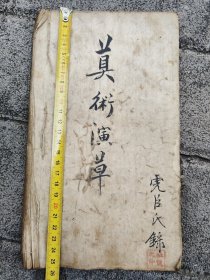 算術演草
虎臣氏錄